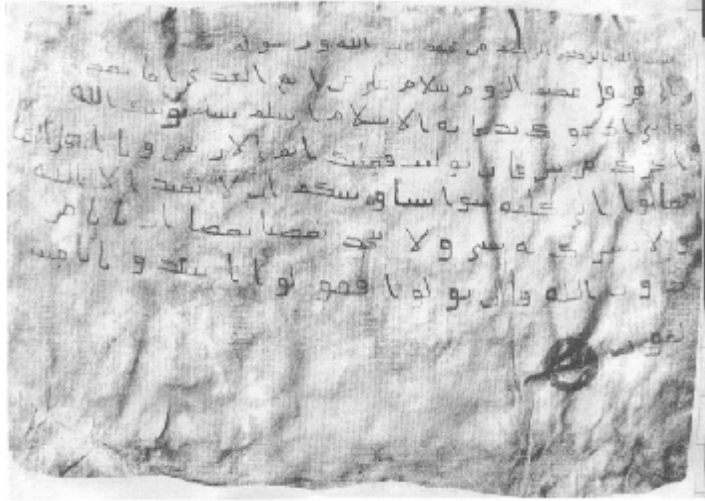 بسم الله الرحمن الرحيم من محمد عبد الله ورسوله
الى هرقل عظيم الروم سلام على من اتبع الهدى اما بعد
فانى ادعوك بدعاية الاسلام اسلم تسلم يوتك الله
اجرك مرتين فان توليت فعليك اثم الاريسين ويا اهل الكتب
تعالوا الى كلمة سوا بيننا وبينكم ان لا نعبد الا الله
ولا نشرك به شيا ولا يتخذ بعضنا بعضا اربابا من
دون الله فان تولوا فقولوا اشهدوا بانا مس
لمون